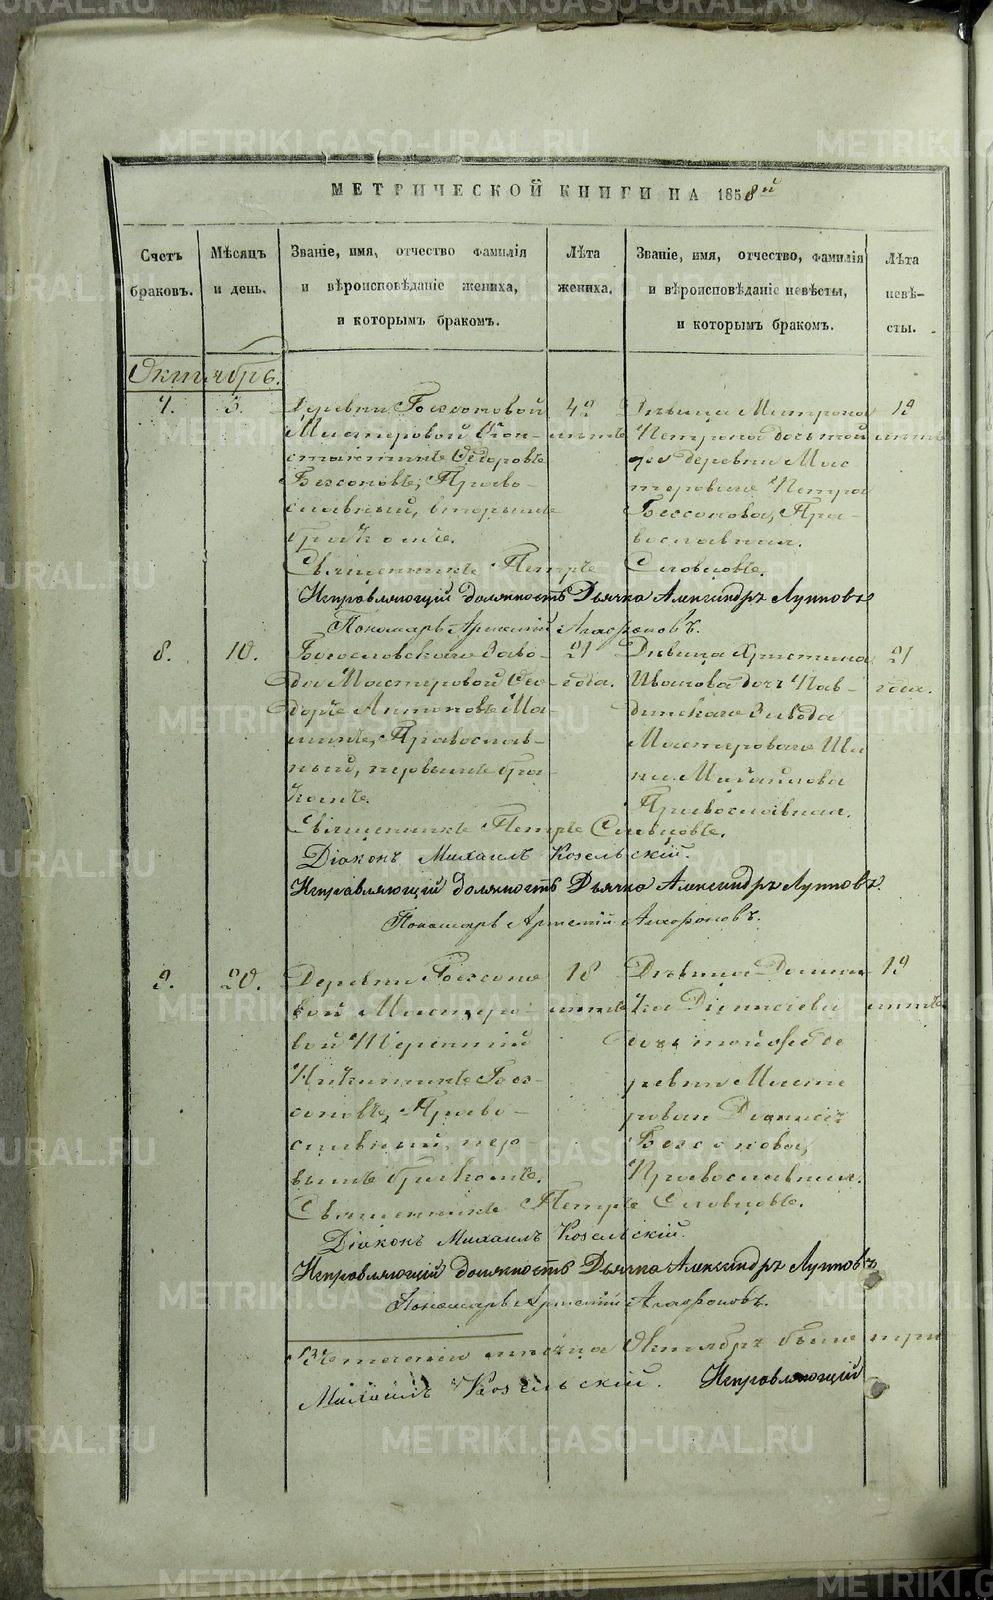 МЕТРИЧЕСКОЙ КНИГИ НА 1858й
Счетъ браковъ.
Мѣсяцъ и день.
Званіе, имя, отчество фамилія
и вѣроисповѣданіе жениха,
и которымъ бракомъ.
Лѣта
жениха.
Званіе, имя, отчество, фамилія
и вѣроисповѣданіе невѣсты,
и которымъ бракомъ.
Лѣта
невѣ-
сты.
Октябрь.
7.
3.
Деревни Бессоновой
Мастеровой Кон-
стантинъ Ѳедоровъ
Бессоновъ, Право-
славный, вторымъ
бракомъ.
42
лѣтъ
Дѣвица Матрона
Петрова дочь той
же деревни Мас-
тероваго Петра
Бессонова, Пра-
вославная.
19
лѣтъ
Священникъ Петръ Словцовъ.
Исправляющій должность Дьячка Александръ Лупповъ
Пономарь Арсеній Агафоновъ.
8.
10.
Богословскаго Заво-
да Мастеровой Ѳе-
доръ Антоновъ
Православ-
ный, первымъ бра-
комъ.
21
года.
Дѣвица Христина
Иванова дочь Пав-
динскаго Завода
Мастероваго Ива
на Михайлова
Православная.
21
года.
Священникъ Петръ Словцовъ.
Діаконъ Михаилъ Козельскій.
Исправляющій должность Дьячка Александръ Лупповъ.
Пономарь Арсеній Агафоновъ.
9.
20.
Деревни Бессоно
вой Мастеро-
вой Терентій
Никитинъ Бес-
соновъ, Право-
славный, пер
вымъ бракомъ.
18
лѣтъ
Дѣвица Домни-
ка Діонисіева
дочь той же де
ревни Масте
роваго Діонисія
Бессонова,
Православная.
19
лѣтъ
Священникъ Петръ Словцовъ.
Діаконъ Михаилъ Козельскій.
Исправляющій должность Дьячка Александръ Лупповъ
Пономарь Арсеній Агафоновъ.
мѣсяца Октября было три
Михаилъ Козельскій. Исправляющій
METRIKI.GASO-URAL.RU